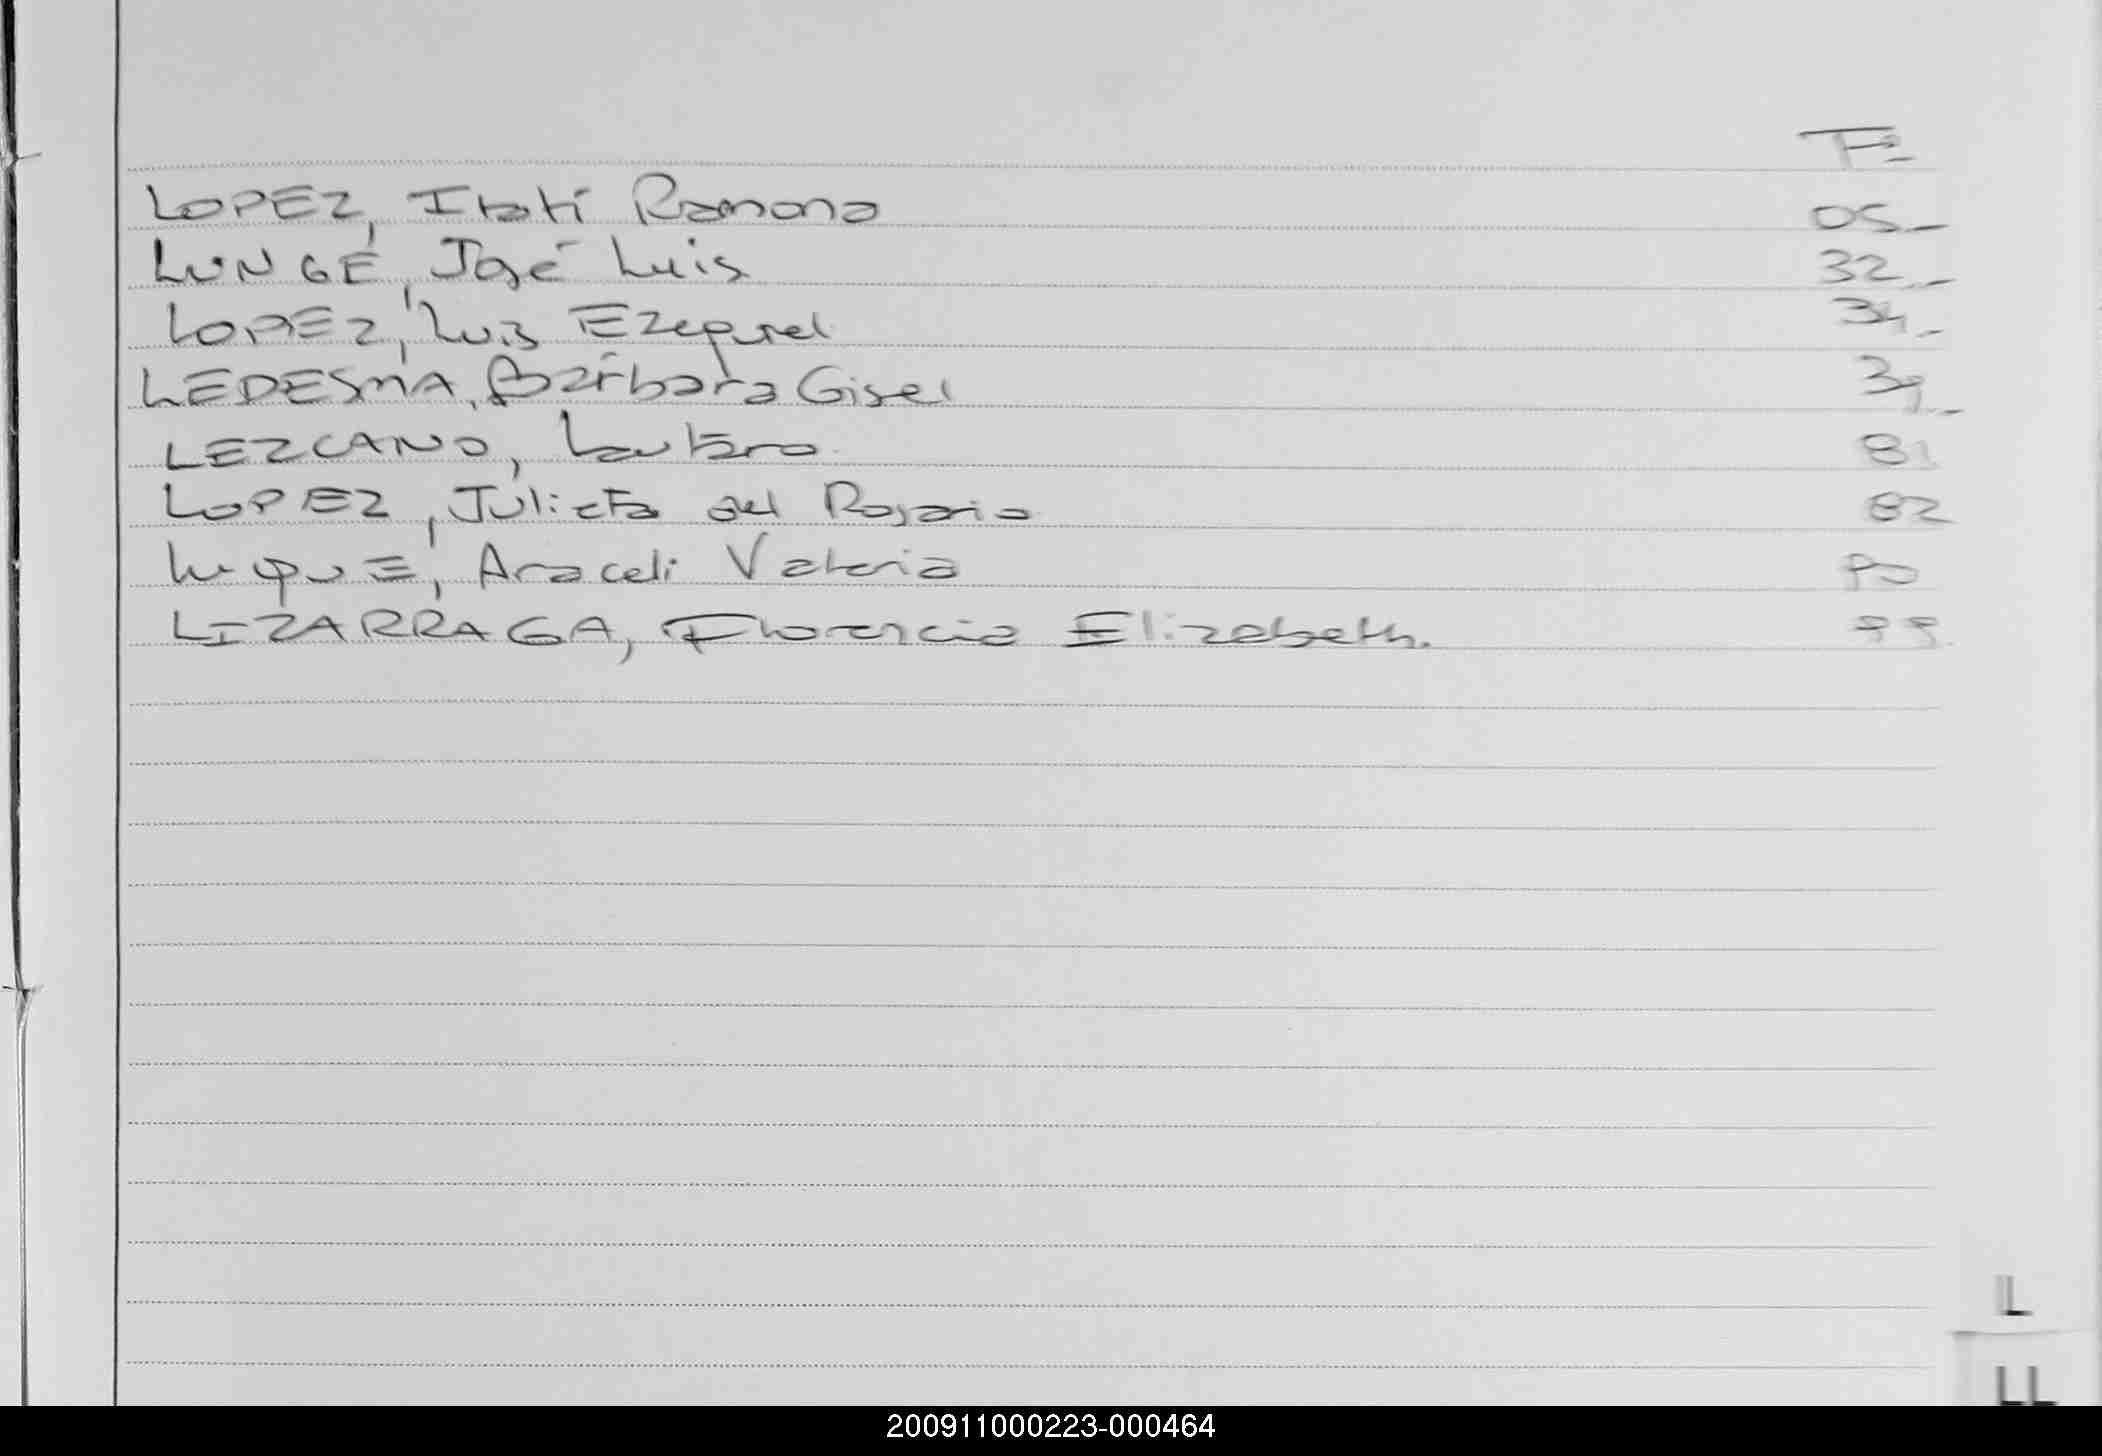 Fº
LOPEZ, Itatí Ramona 05_
LUNGE, José Luis 32_
LOPEZ, Luis Ezequiel 34_
LEDESMA, Bárbara Gisel 39_
LEZCANO, Lautaro 81
LOPEZ, Julieta del Rosario 82
LuquE, Araceli Valeria 90
LIZARRAGA, Florencia Elizabeth. 99.
L
LL
200911000223-000464